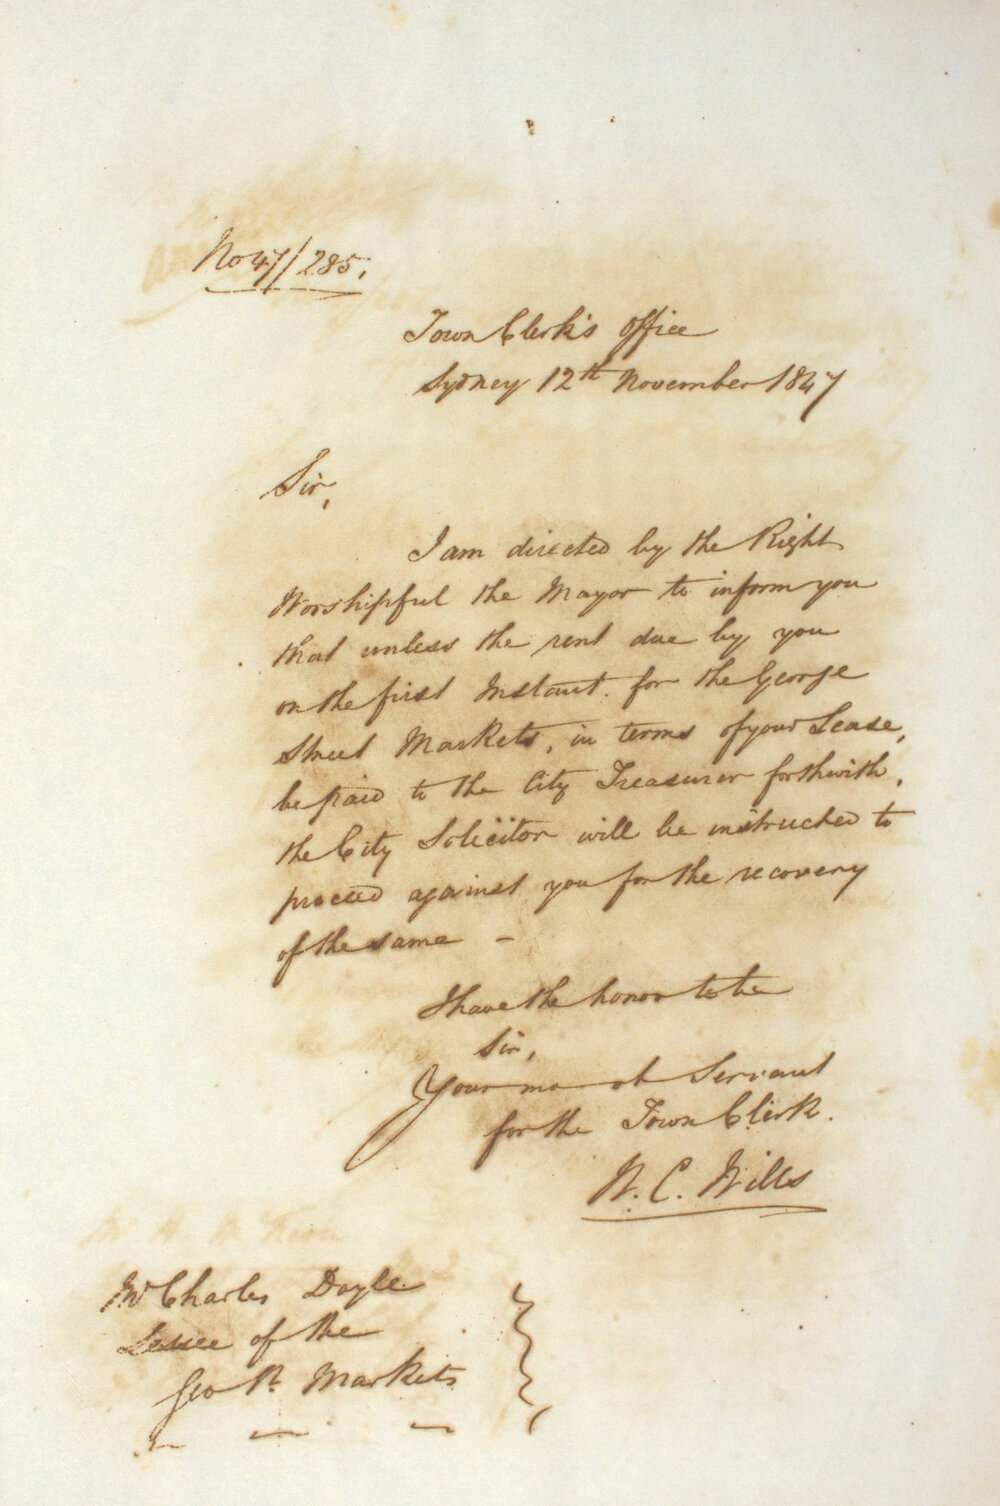 No 47/285.
Town Clerk's Office
Sydney 12th November 1847
Sir,
I am directed by the Right
Worshipful the Mayor to inform you
that unless the rent due by you
on the first Instant. for the George
Street Markets, in terms of your Lease,
be paid to the City Treasurer forthwith,
the City Solicitor will be instructed to
proceed against you for the recovery
of the same –
I have the honor to be
Sir,
Your mo ob Servant
for the Town Clerk.
W. C. Wills
Mr Charles Doyle
Lessee of the
Geo St Markets